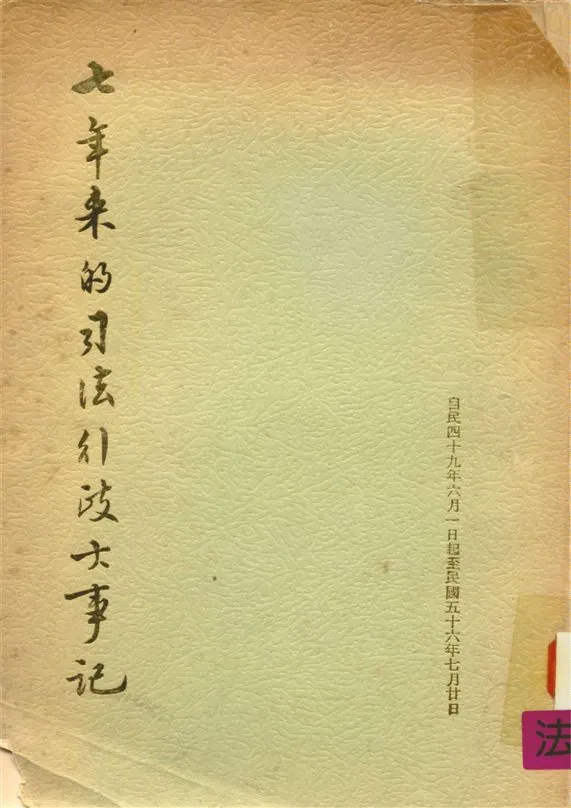 七年来的司法行政大事記
自民四十九年六月一日起至民國五十六年七月廿日
法